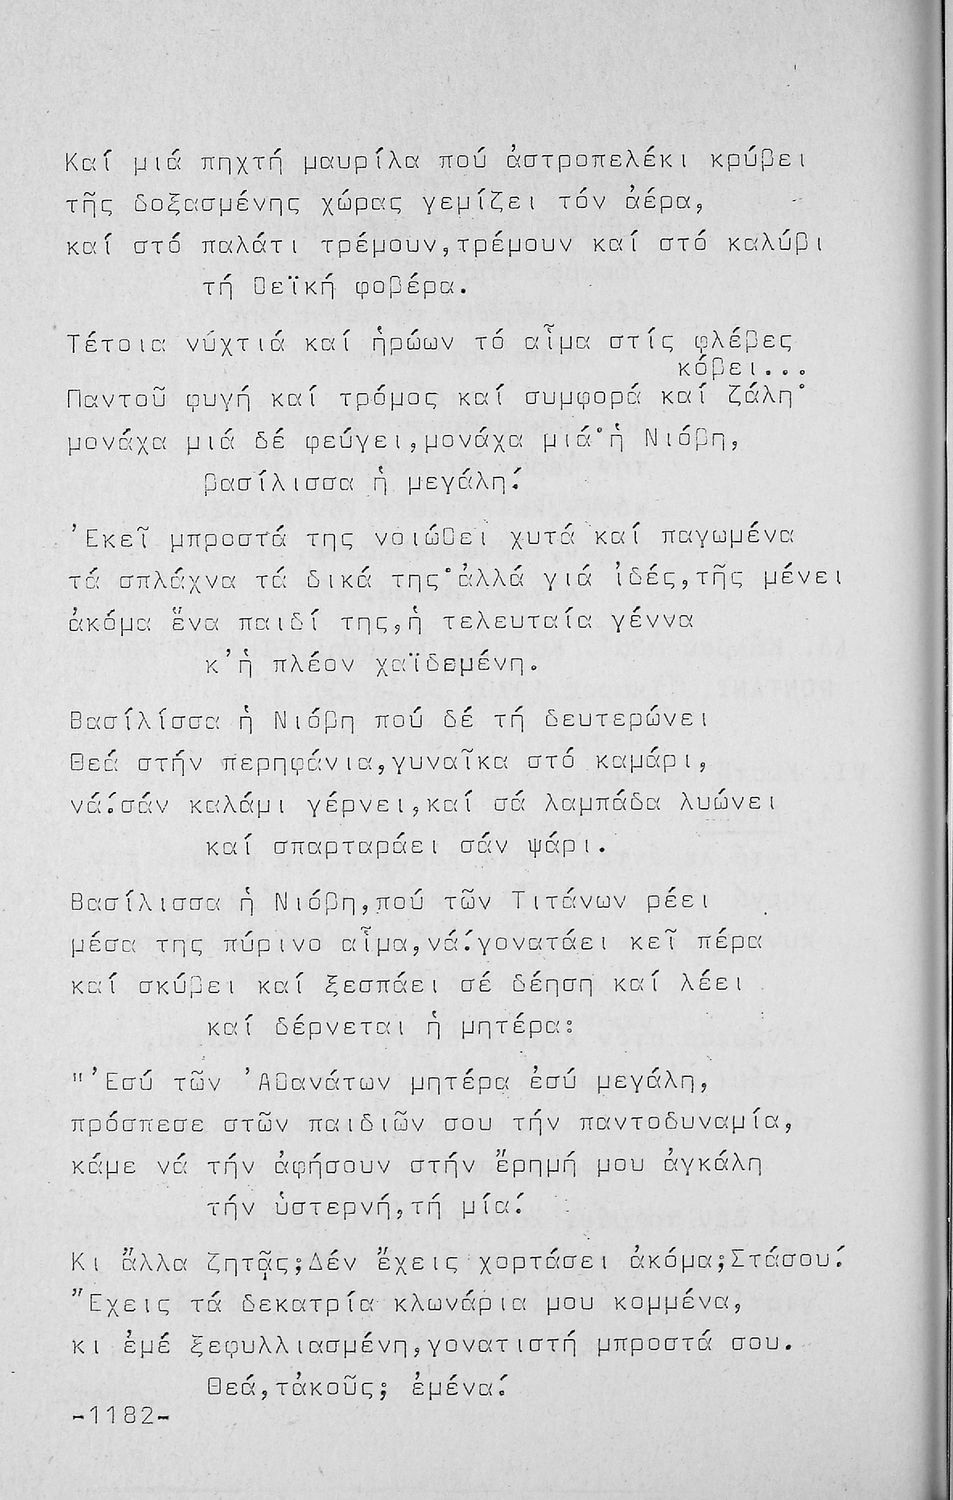 Καί μιά πηχτή μαυρίλα πού ἀστροπελέκι κρύβει
τῆς δοξασμένης χώρας γεμίζει τόν ἀέρα,
καί στό παλάτι τρέμουν,τρέμουν καί στό καλύβι
τή θεϊκή φοβέρα.
Τέτοια νύχτιά καί ἡρώων τό αἷμα στίς φλέβες
κόβει...
Παντοῦ φυγή καί τρόμος καί συμφορά καί ζάλη·
μονάχα μιά δέ φεύγει,μονάχα μιά·ἡ Νιόβη,
βασίλισσα ἡ μεγάλη!
Ἐκεῖ μπροστά της νοιώθει χυτά καί παγωμένα
τά σπλάχνα τά δικά της·ἀλλά γιά ἰδές,τῆς μένει
ἀκόμα ἕνα παιδί της,ἡ τελευταία γέννα
κ᾿ἡ πλέον χαϊδεμένη.
Βασίλίσσα ἡ Νιόβη πού δέ τή δευτερώνει
Θεά στήν περηφάνια,γυναῖκα στό καμάρι,
νά!σάν καλάμι γέρνει,καί σά λαμπάδα λυώνει
καί σπαρταράει σάν ψάρι.
Βασίλισσα ἡ Νιόβη,πού τῶν Τιτάνων ρέει
μέσα της πύρινο αἷμα,νά!γονατάει κεῖ πέρα
καί σκύβει καί ξεσπάει σέ δέηση καί λέει
καί δέρνεται ἡ μητέρα:
"Ἐσύ τῶν Ἀθανάτων μητέρα ἐσύ μεγάλη,
πρόσπεσε στῶν παιδιῶν σου τήν παντοδυναμία,
κάμε νά τήν ἀφήσουν στήν ἔρημή μου ἀγκάλη
τήν ὑστερνή,τή μία!
Κι ἄλλα ζητᾷς;Δέν ἔχεις χορτάσει ἀκόμα;Στάσου!
Ἔχεις τά δεκατρία κλωνάρια μου κομμένα,
κι ἐμέ ξεφυλλιασμένη,γονατιστή μπροστά σου.
Θεά,τἀκοῦς; ἐμένα!
-1182-